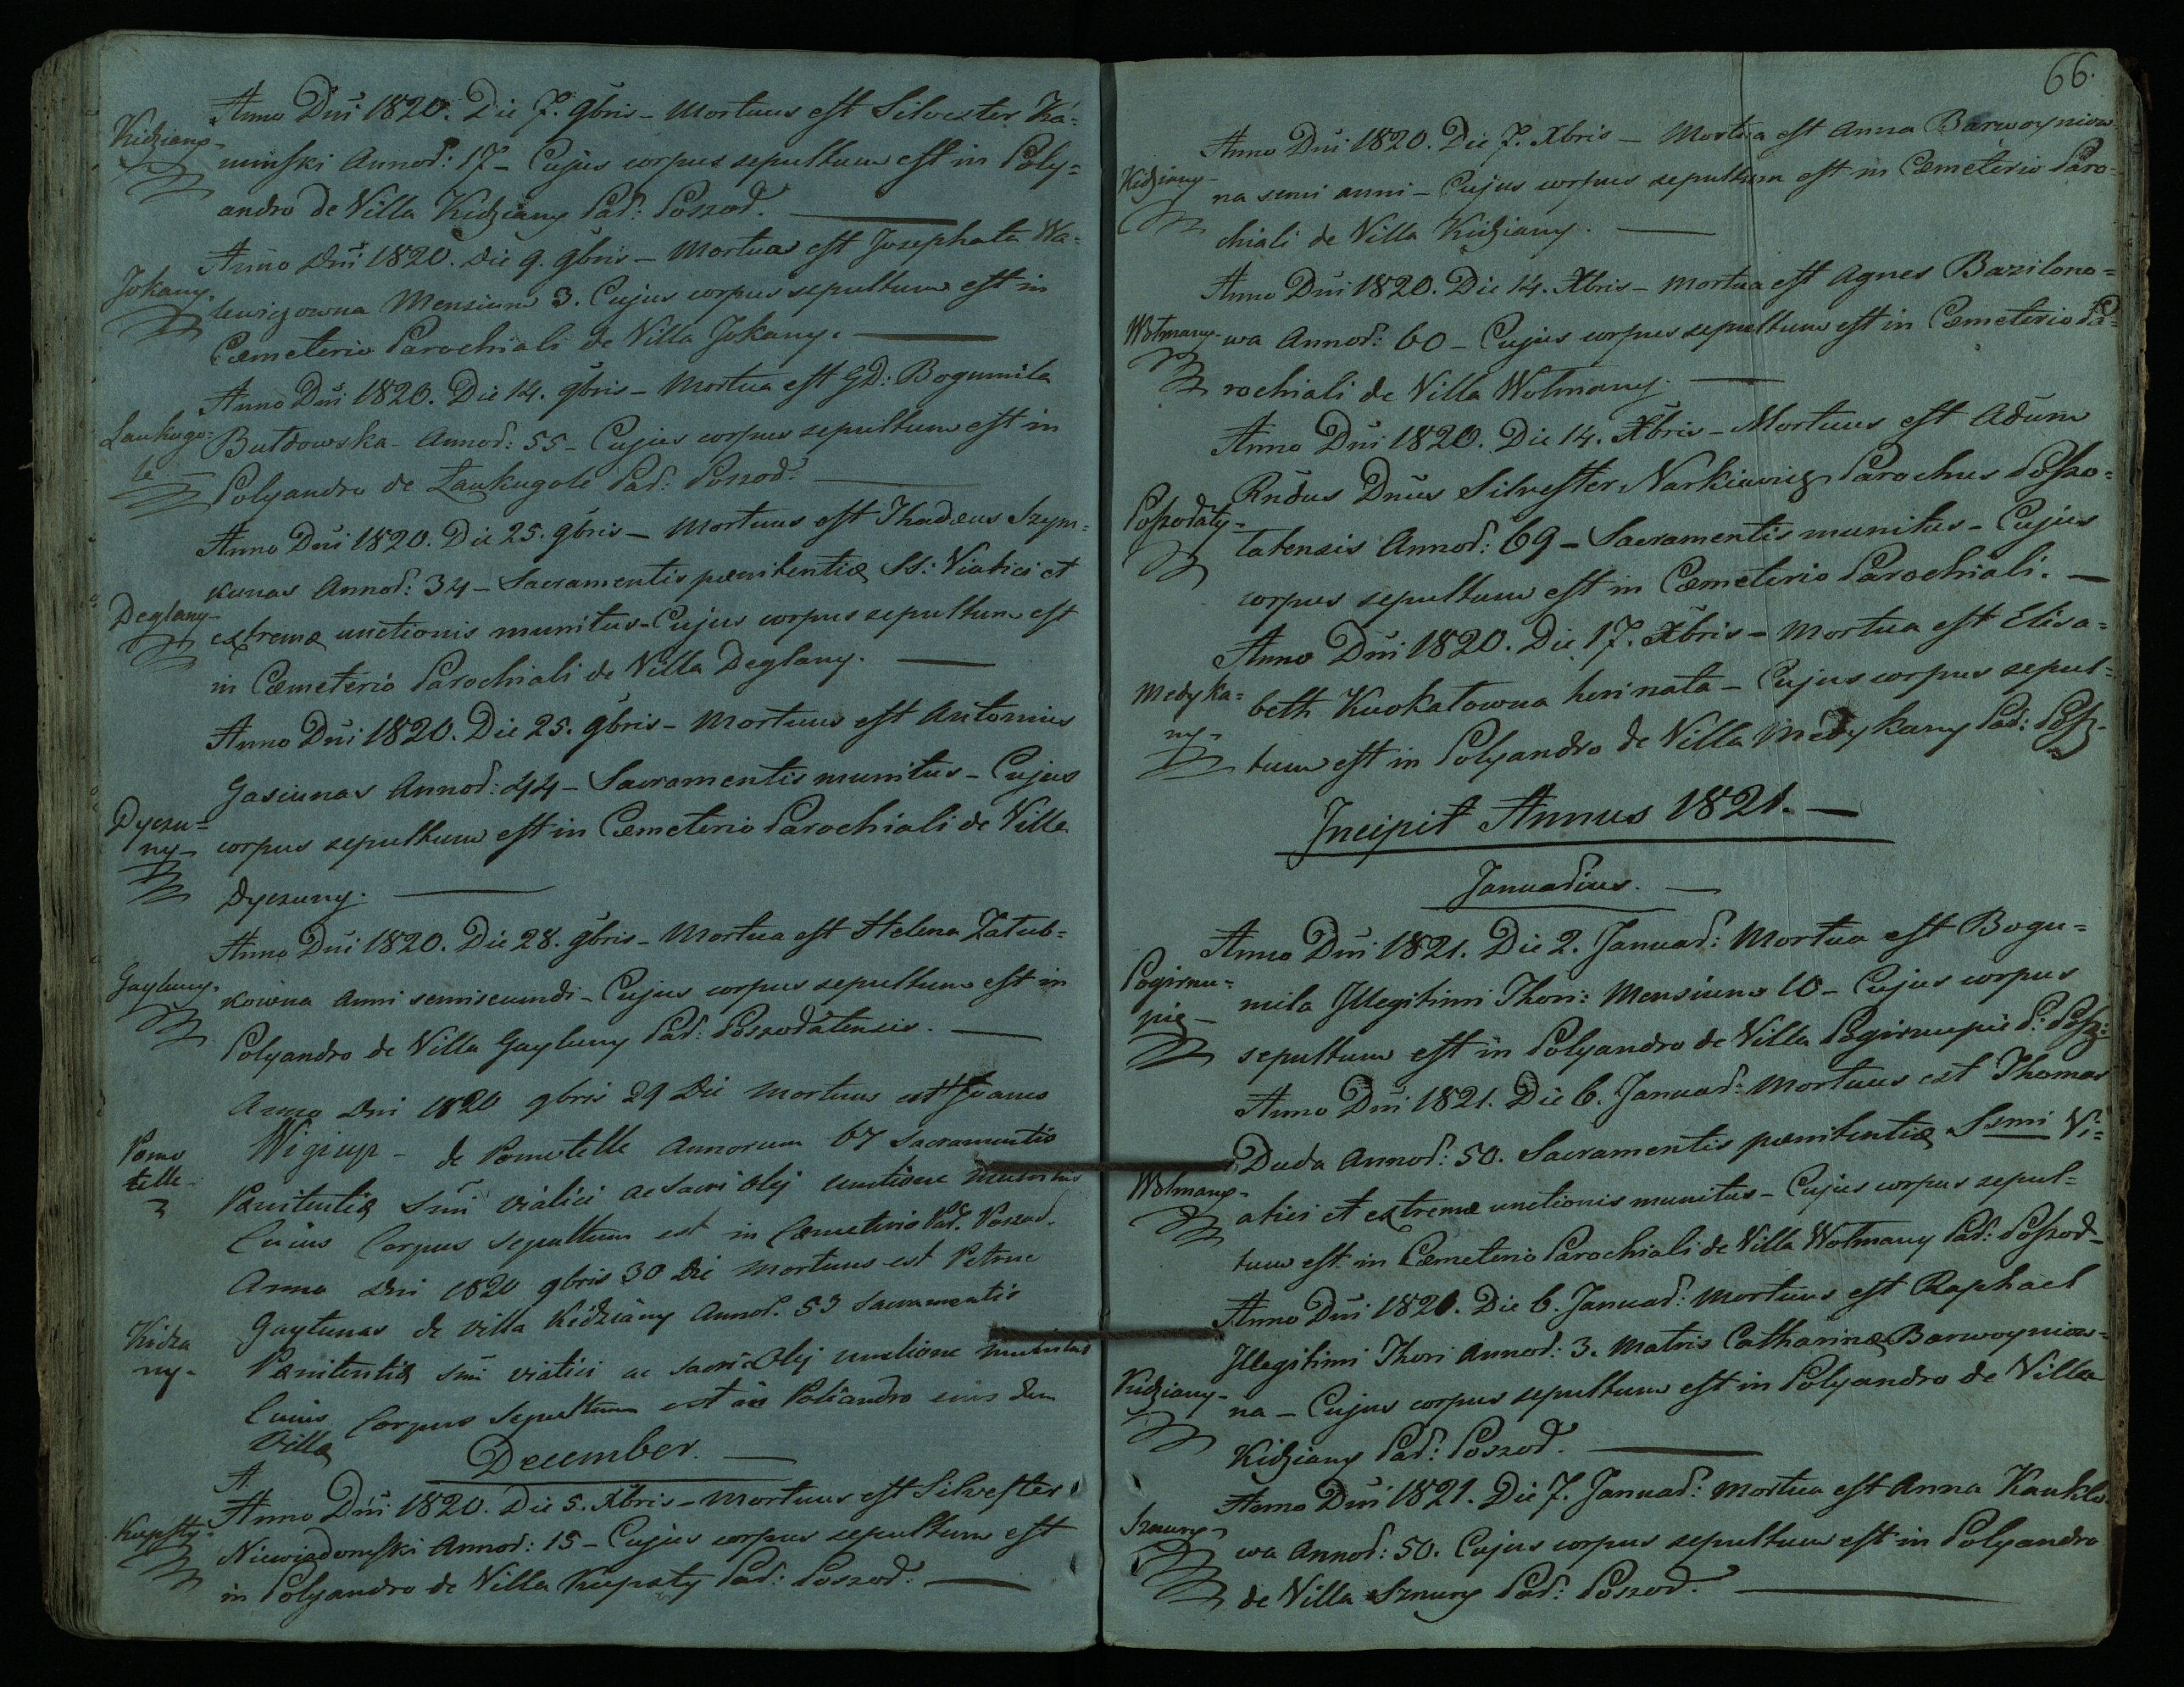 Kidziany-
Anno Dni 1820. Die 7. 9bris - Mortuus est Silvester Ka=
minski Annor: 17 - Cujus corpus sepultum est in Poly=
andro de Villa Kidziany Par: Poszod.
Jokany.
Anno Dni 1820. Die 9. 9bris - Mortua est Josephata Wa=
lewiczowna Mensium 3. Cujus corpus sepultum est in
Cæmeterio Parochiali de Villa Jokany.
Laukugo=
le
Anno Dni 1820. Die 14. 9bris - Mortua est GD: Bogumila
Butdowska - Annor: 55 - Cujus corpus sepultum est in
Polyandro de Laukugole Par: Poszod.
Deglany-
Anno Dni 1820. Die 25. 9bris - Mortuus est Thadæus Szym=
kunas Annor: 34 - Sacramentis pænitentiæ SS: Viatici et
extremæ unctionis munitus - Cujus corpus sepultum est
in Cæmeterio Parochiali de Villa Deglany.
Dyczu=
ny-
Anno Dni 1820. Die 25. 9bris - Mortuus est Antonius
Gasiunas Annor: 44 - Sacramentis munitus - Cujus
corpus sepultum est in Cæmeterio Parochiali de Villa
Dyczuny.
Gayluny.
Anno Dni 1820. Die 28. 9bris - Mortua est Helena Zatub=
kowna Anni semisecundi - Cujus corpus sepultum est in
Polyandro de Villa Gayluny Par: Poszodatensis.
Pome
telle-
Anno Dni 1820 9bris 29 Die Mortuus est Joanes
- de Pometelle Annorum 67 Sacramentis
Pænitentiæ Smi viatici ac sacri Olej unctione munitus
Cuius Corpus Sepultum est in Cæmeterio Par. Poszod.
Kidza
ny-
Anno Dni 1820 9bris 30 Die Mortuus est Petrus
Gaytunas de villa Kidziany Annor. 53 Sacramentis
Pænitentiæ Smi viatici ac sacri Olej unctione munitus
Cuius Corpus Sepultum est in Poliandro eius dem
Villæ
December.
A.
Kupsty-
Anno Dni 1820. Die 5. Xbris - Mortuus est Silvester
Niewiadomski Annor: 15 - Cujus corpus sepultum est
in Polyandro de Villa Kupsty Par: Poszod.
66.
Kidziany-
Anno Dni 1820. Die 7. Xbris - Mortua est Anna Barwoyniow
na semi anni - Cujus corpus sepultum est in Cæmeterio Paro=
chiali de Villa Kidziany.
Wotmany-
Anno Dni 1820. Die 14. Xbris - Mortua est Agnes Bazilono=
wa Annor: 60 - Cujus corpus sepultum est in Cæmeterio Pa=
rochiali de Villa Wotmany.
Poszodaty-
Anno Dni 1820. Die 14. Xbris - Mortuus est Adum
Rndus Dnus Silvester Narkiewicz Parochus Poszo=
tatensis Annor: 69 - Sacramentis munitus - Cujus
corpus sepultum est in Cæmeterio Parochiali.
Medyka=
ny-
Anno Dni 1820. Die 17. Xbris - Mortua est Elisa=
beth Kuokatowna heri nata - Cujus corpus sepul=
tum est in Polyandro de Villa Medykany Par: Posz-
Incipit Annus 1821.
Januarius.
Pogirnu=
pie-
Anno Dni 1821. Die 2. Januar: Mortua est Bogu=
mila Illegitimi Thori: Mensium 10 - Cujus corpus
sepultum est in Polyandro de Villa Pogirnupie P: Posz:
Wotmany-
Anno Dni 1821. Die 6. Januar: Mortuus est Thomas
Duda Annor: 50. Sacramentis pænitentiæ Ssmi Vi=
atici et extremæ unctionis munitus - Cujus corpus sepul=
tum est in Cæmeterio Parochiali de Villa Wotmany Par: Poszod-
Kidziany-
Anno Dni 1821. Die 6. Januar: Mortuus est Raphael
Illegitimi Thori Annor: 3. Matris Catharinæ Barwoyniow=
na - Cujus corpus sepultum est in Polyandro de Villa
Kidziany Par: Poszod.
Sznury-
Anno Dni 1821. Die 7. Januar: Mortua est Anna Kauklo
wa Annor: 50. Cujus corpus sepultum est in Polyandro
de Villa Sznury Par: Poszod.